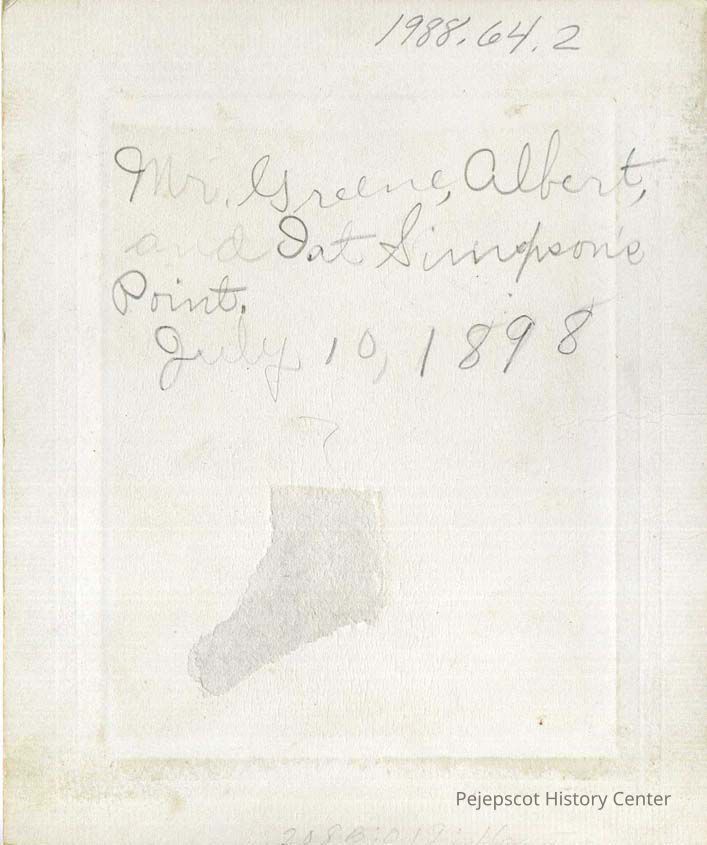 1988.64.2
Mr. Greene, Albert,
and I at Simpson's
Point.
July 10, 1898
Pejepscot History Center